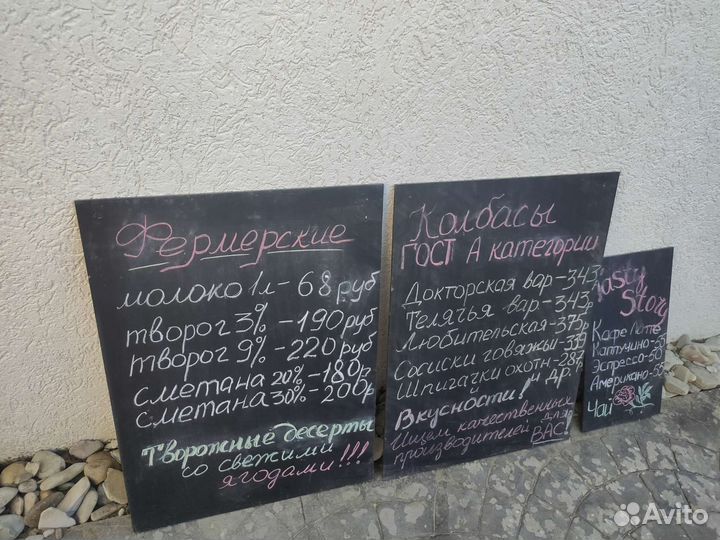 Фермерские
молоко 1л - 68 руб
творог 3% - 190 руб
творог 9% - 220 руб
сметана 20% - 180р
сметана 30% - 200р
Творожные десерты
со свежими
ягодами!!!
Колбасы
ГОСТ А категории
Докторская вар - 343
Телячья вар - 343р
Любительская - 375р
Сосиски говяжьи - 339
Шпигачки охотн - 287
и др.
Вкусности!
Ищем качественных
производителей для
ВАС!
Tasty
Story
Кафе Латте
Каппучино - 55
Эспрессо - 50
Американо - 55
Чай
Avito